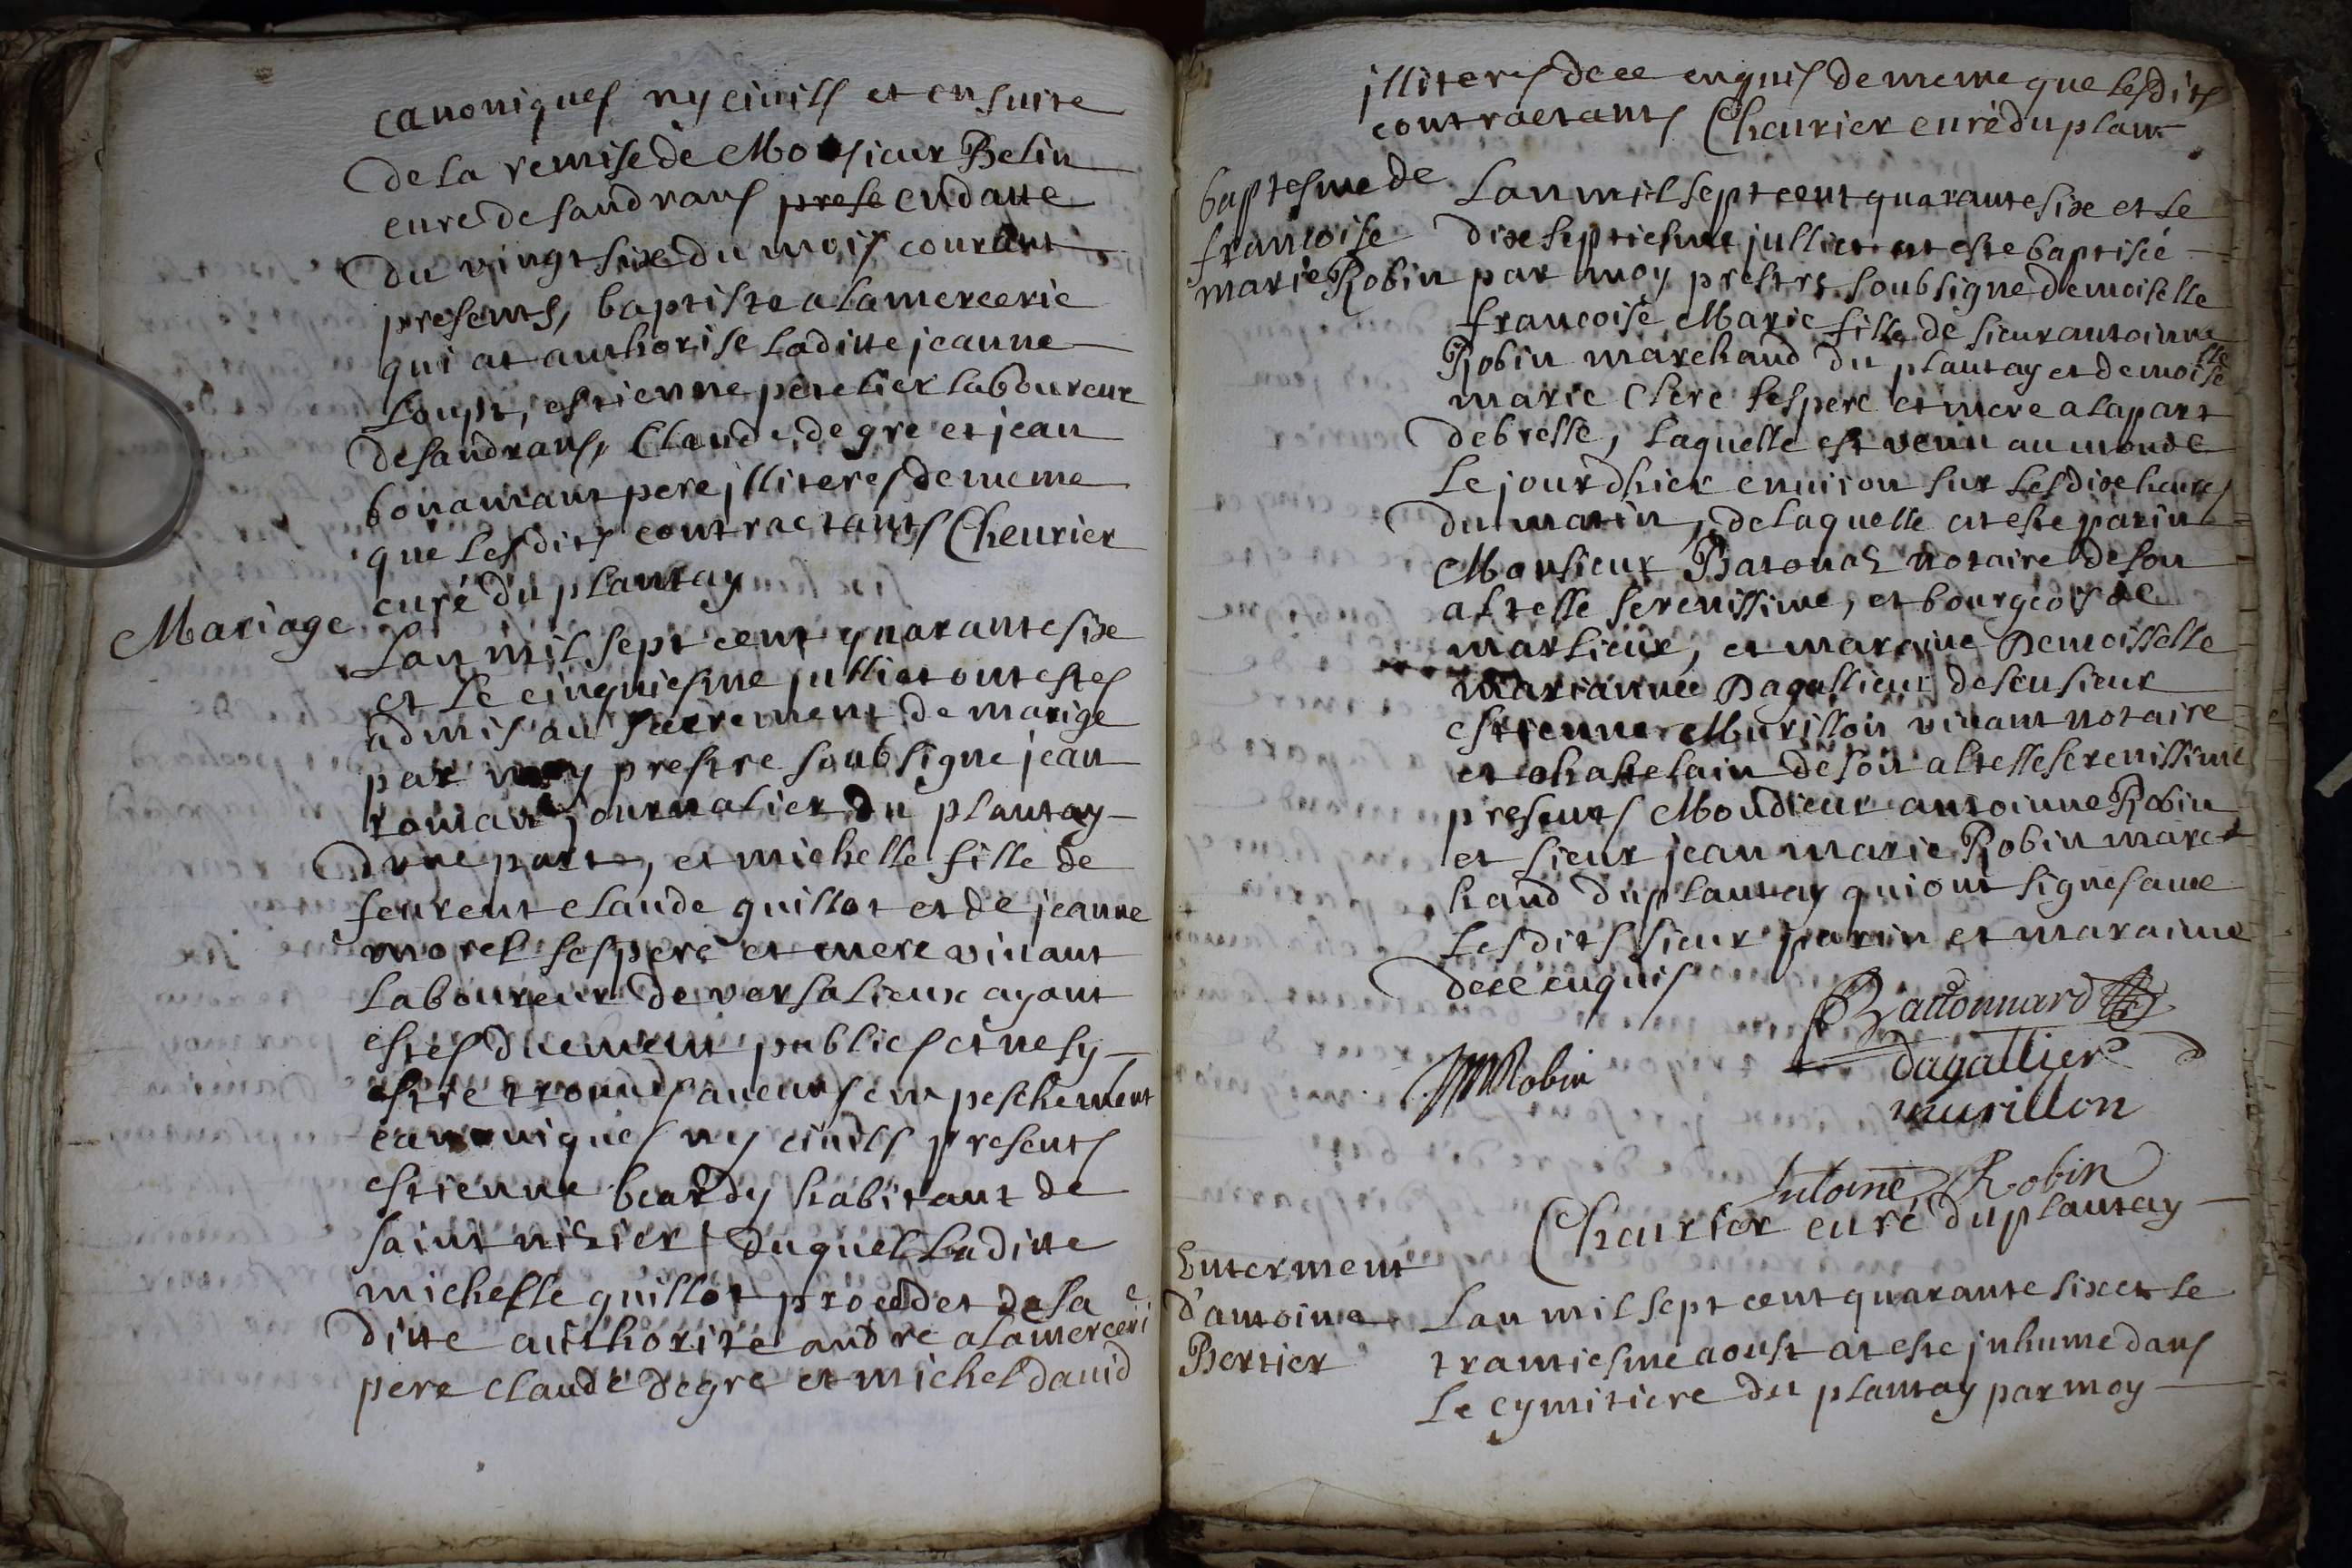 canoniques ny ciuils et ensuite
de la remise de Monsieur Belin
curé de sandrans prese en datte
du vingt sixe du mois courant
presents, baptiste alamercerie
qui at authorise laditte jeanne
Loupt, estienne peretier laboureur
de sandrans, Claude degre et jean
bonamant pere jlliteres de meme
que lesdits contractants Cheurier
curé du plantay
Mariage
Lan mil sept cent quarante sixe
et le cinquiesme julliet ont estes
admis au sacrement de marige
par moy prestre soubsigne jean
journalier du plantay
dune part, et michelle fille de
feurent claude guillot et de jeanne
morel ses pere et mere viuant
laboureur de versalieux ayant
estes duement publies et ne sy
estre trouués aucuns empeschement
canoniques ny ciuils presents
estienne beardy habitant de
saint nizier duquel laditte
michelle guillot procedet de sa
ditte authorite andre alamercerie
pere claude degre et michel dauid
jlliteres de ce enquis de meme que lesdits
contractants Cheurier curé du plant
baptesme de
francoise
marie Robin
Lan mil sept cent quarante sixe et le
dixe septiesme julliet at este baptisée
par moy prestre soubsigné demoiselle
francoise Marie fille de sieur antoinne
Robin marchand du plantay et demoiselle
marie Clere ses pere et mere a la part
de bresse, laquelle est venu au monde
le jour dhier enuiron sur les dixe heures
du matin, de laquelle at este parin
Monsieur Batonaz notaire de son
altesse serenissime, et bourgeois de
marlieux, et maraine Demoisselle
marianne Dagallieur de feu sieur
estienne Murillon viuant notaire
et chastelain de son altesse serenissime
presents Moudieur antoinne Robin
et sieur jean marie Robin marc
hand du plantay qui ont signes auec
lesdits sieur parin et maraine
de ce enquis
Batonnard
JM Robin
dagallier
murillon
Antoine Robin
Cheurier curé du plantay
Enterment
d'antoine
Bertier
Lan mil sept cent quarante sixe et le
trantiesme aoust at este jnhume dans
le cymitiere du plantay par moy